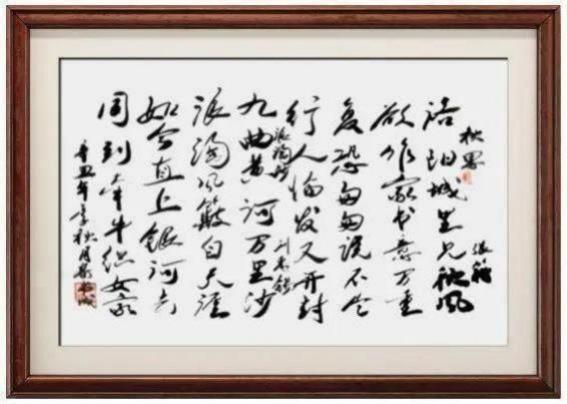 秋思
张籍
洛阳城里见秋风
欲作家书意万重
复恐匆匆说不尽
行人临发又开封
浪淘沙 刘禹锡
九曲黄河万里沙
浪淘风簸自天涯
如今直上银河去
同到牵牛织女家
辛丑年 秋月